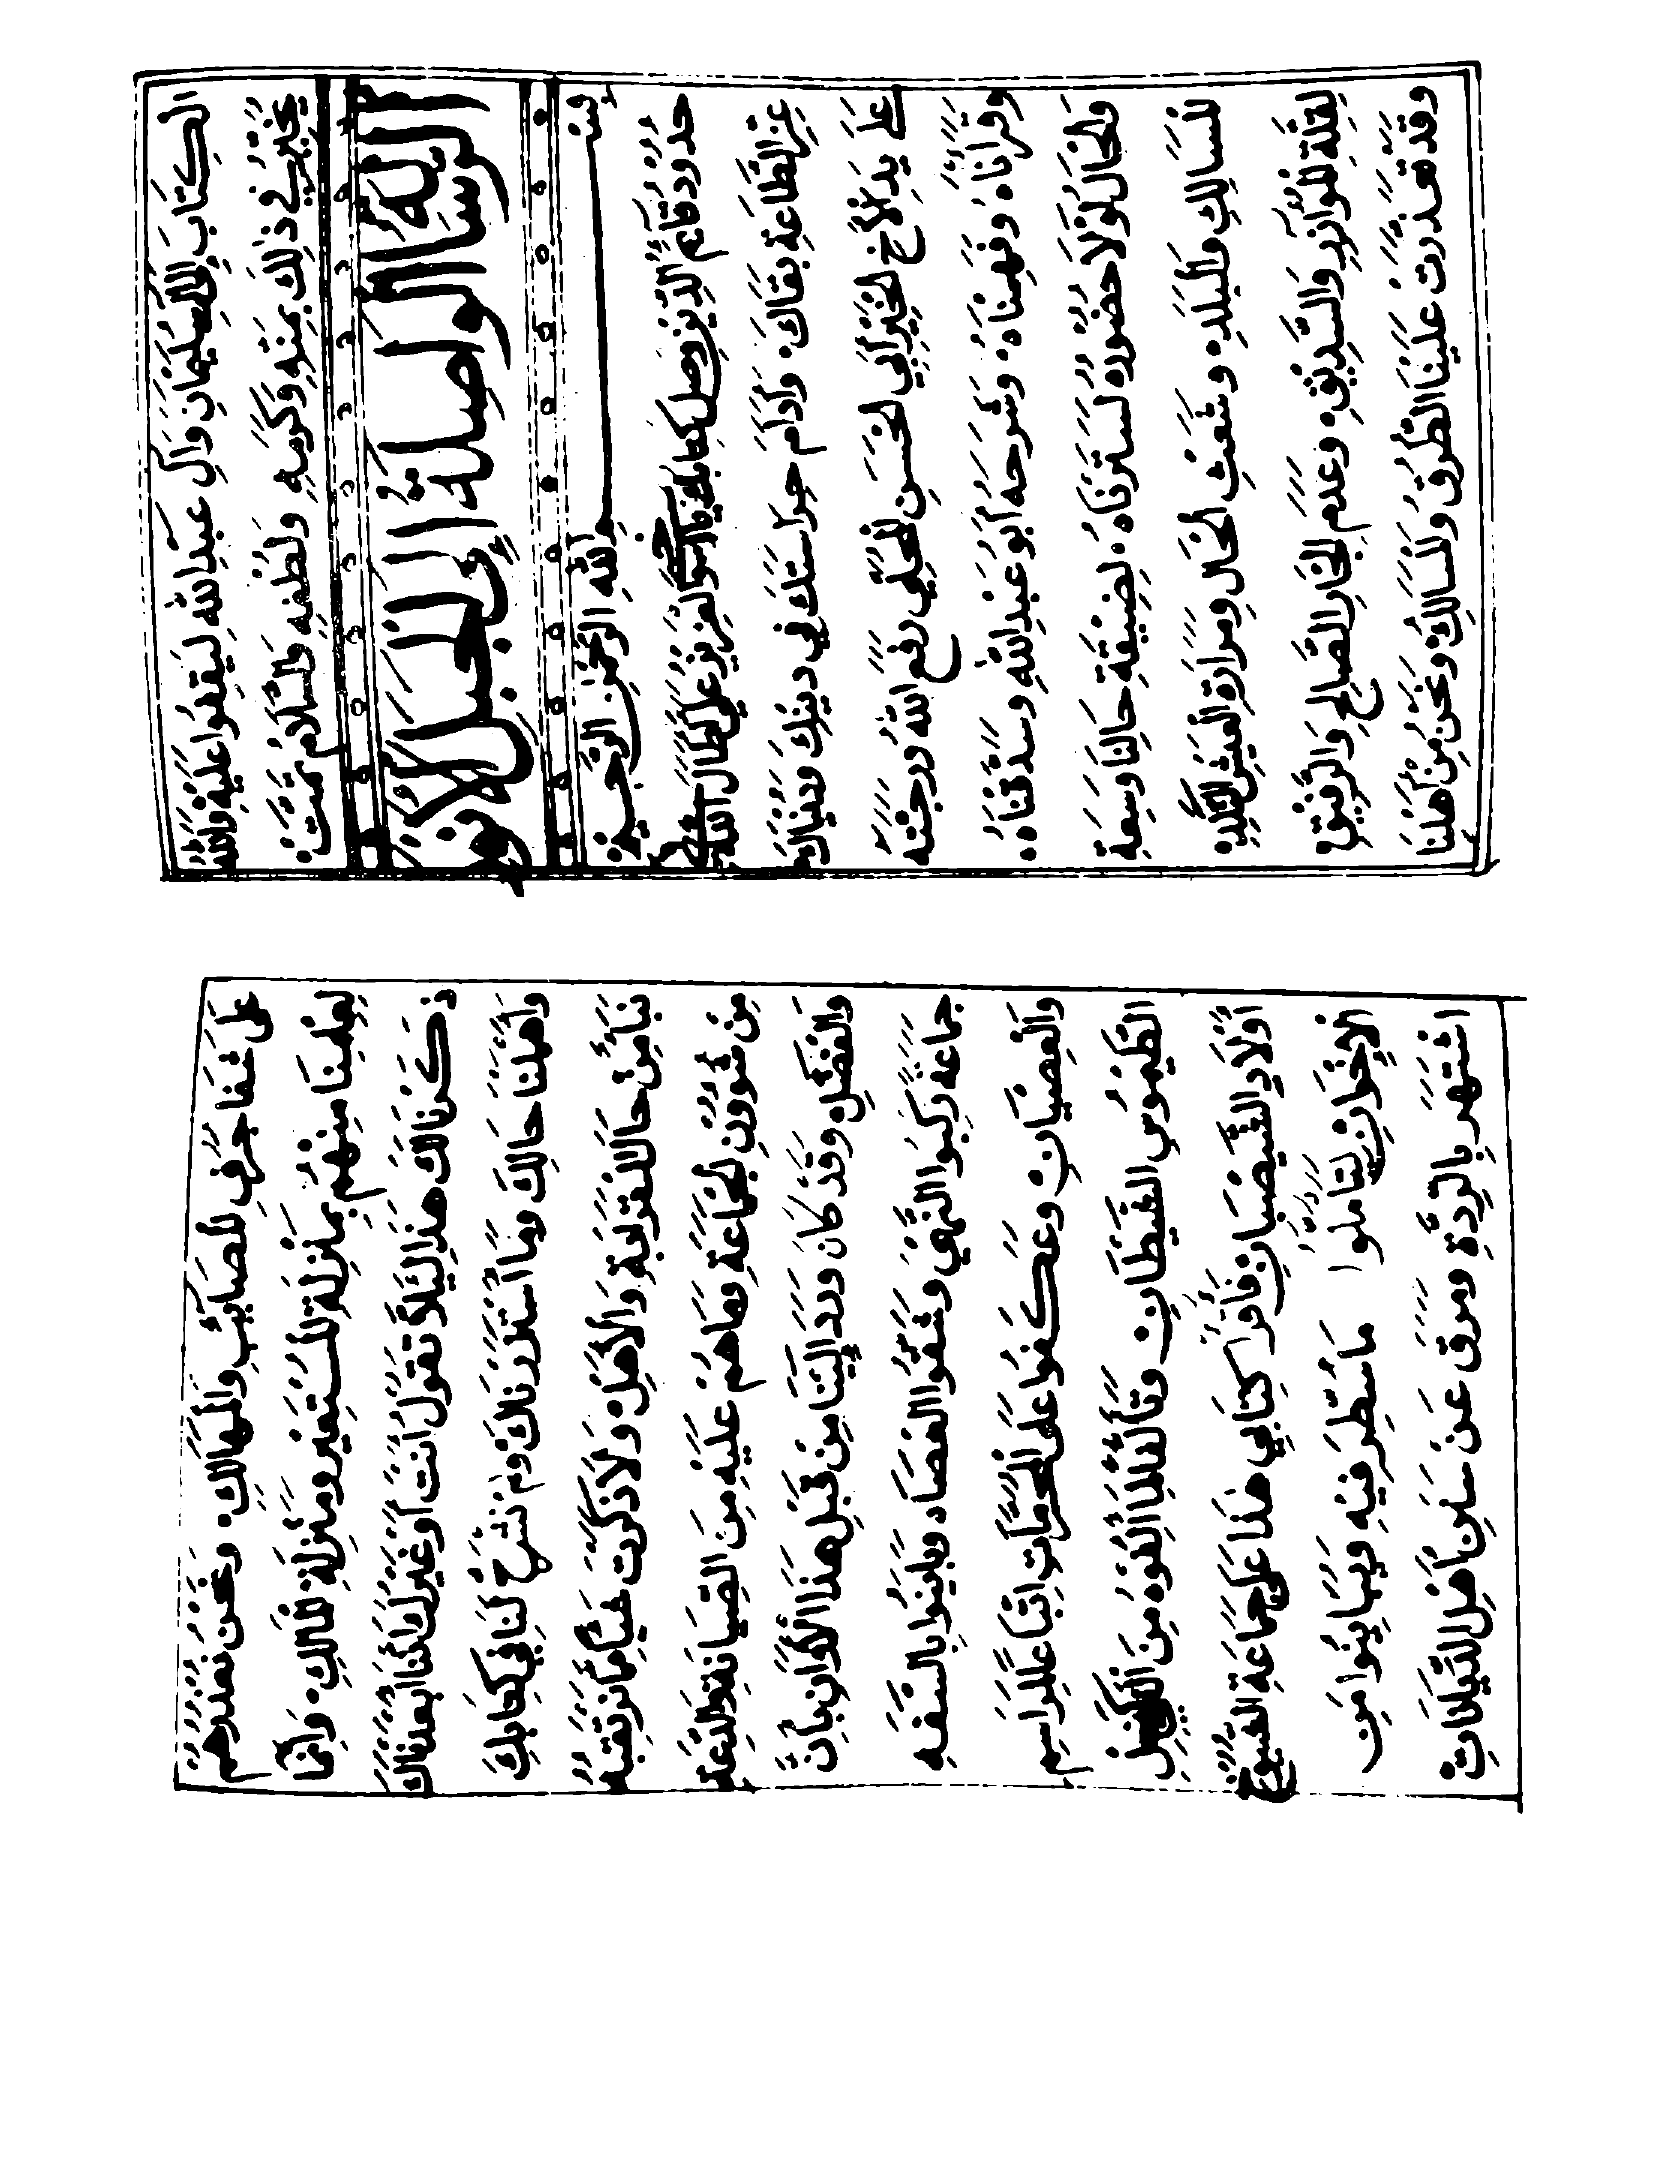 الكتاب وآل عبد الله ليقفوا عليه والله
في ذلك بمنه وكرمه ولطفه والسلام تمت
الرسالة الواصلة إلى الجبل الأنور
بسم الله الرحمن الرحيم
حدود الدين وصل كتابك اطال الله
عز الطاعة بقاك وادام حراستك في دينك ودنياك
على يد الأخ الخير ابي الحسن المحلي رفع الله درجته
وقراناه وفهمناه وشرحه ابو عبد الله وسدقناه
والحال لولا حضوره لسترناه لضيقة حالنا وسعة
المسالك والبلد وشعث الحال ومرارة العيش النكد
لقلة الموآزر والسديق وعدم الجار الصالح والرفيق
وقد تعذرت علينا الطرق والمسالك ونحن من اهلنا
على شفا جرف المصايب والمهالك ونحن نعذرهم
لعلمنا منهم بمنزلة المستعير ومنزلة المالك وانما
ذكرنا لك هذا ليلا تقول انت او غيرك اننا ابعدناك
واهلنا حالك وما ولم تشرح لنا في كتابك
نبا من حال القرابة والاهل ولا ذكرت شيا مما نرتقبه
من شوون الجماعة وما هم عليه من الصيانة والدعة
والفضل وقد كان ورد الينا من قبل هذا الاوان بان
جماعة ركبوا النهي وشقوا العصاه وباينوا بالسفه
والعصيان وعكفوا على المحرمات اتباعا للمراسم
الشيطان وتالفا لما الفوه من
اولاد الشيصبان فاقرا كتابي هذا على جماعة الشيوخ
الاخوان ليتاملوا ما سطر فيه ويباينوا من
اشتهر بالردة ومرق عن سنن اهل الديانات